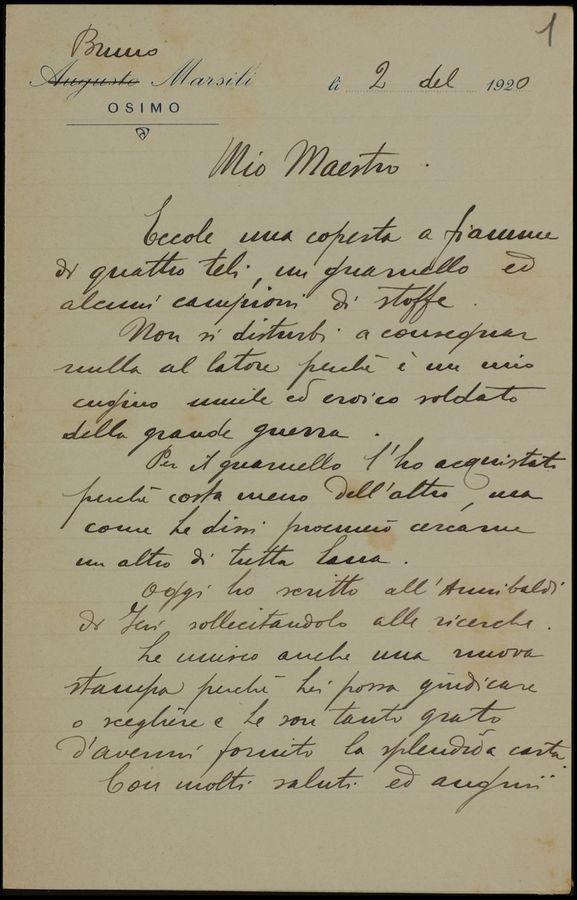 1
Bruno
Augusto Marsili
OSIMO
li 2 del 1920
Mio Maestro.
Eccole una coperta a fiamme
di quattro teli, un guarnello ed
alcuni campioni di stoffe.
Non si disturbi a consegnar
nulla al latore perchè è un mio
cugino umile ed eroico soldato
della grande guerra.
Per il guarnello l'ho acquistato
perchè costa meno dell'altro, ma
come Le dissi procurerò cercarne
un altro di tutta lana.
Oggi ho scritto all'Annibaldi
di Jesi sollecitandolo alle ricerche.
Le unisco anche una nuova
stampa perchè Lei possa giudicare
o scegliere e Le son tanto grato
d'avermi fornito la splendida carta.
Con molti saluti ed auguri